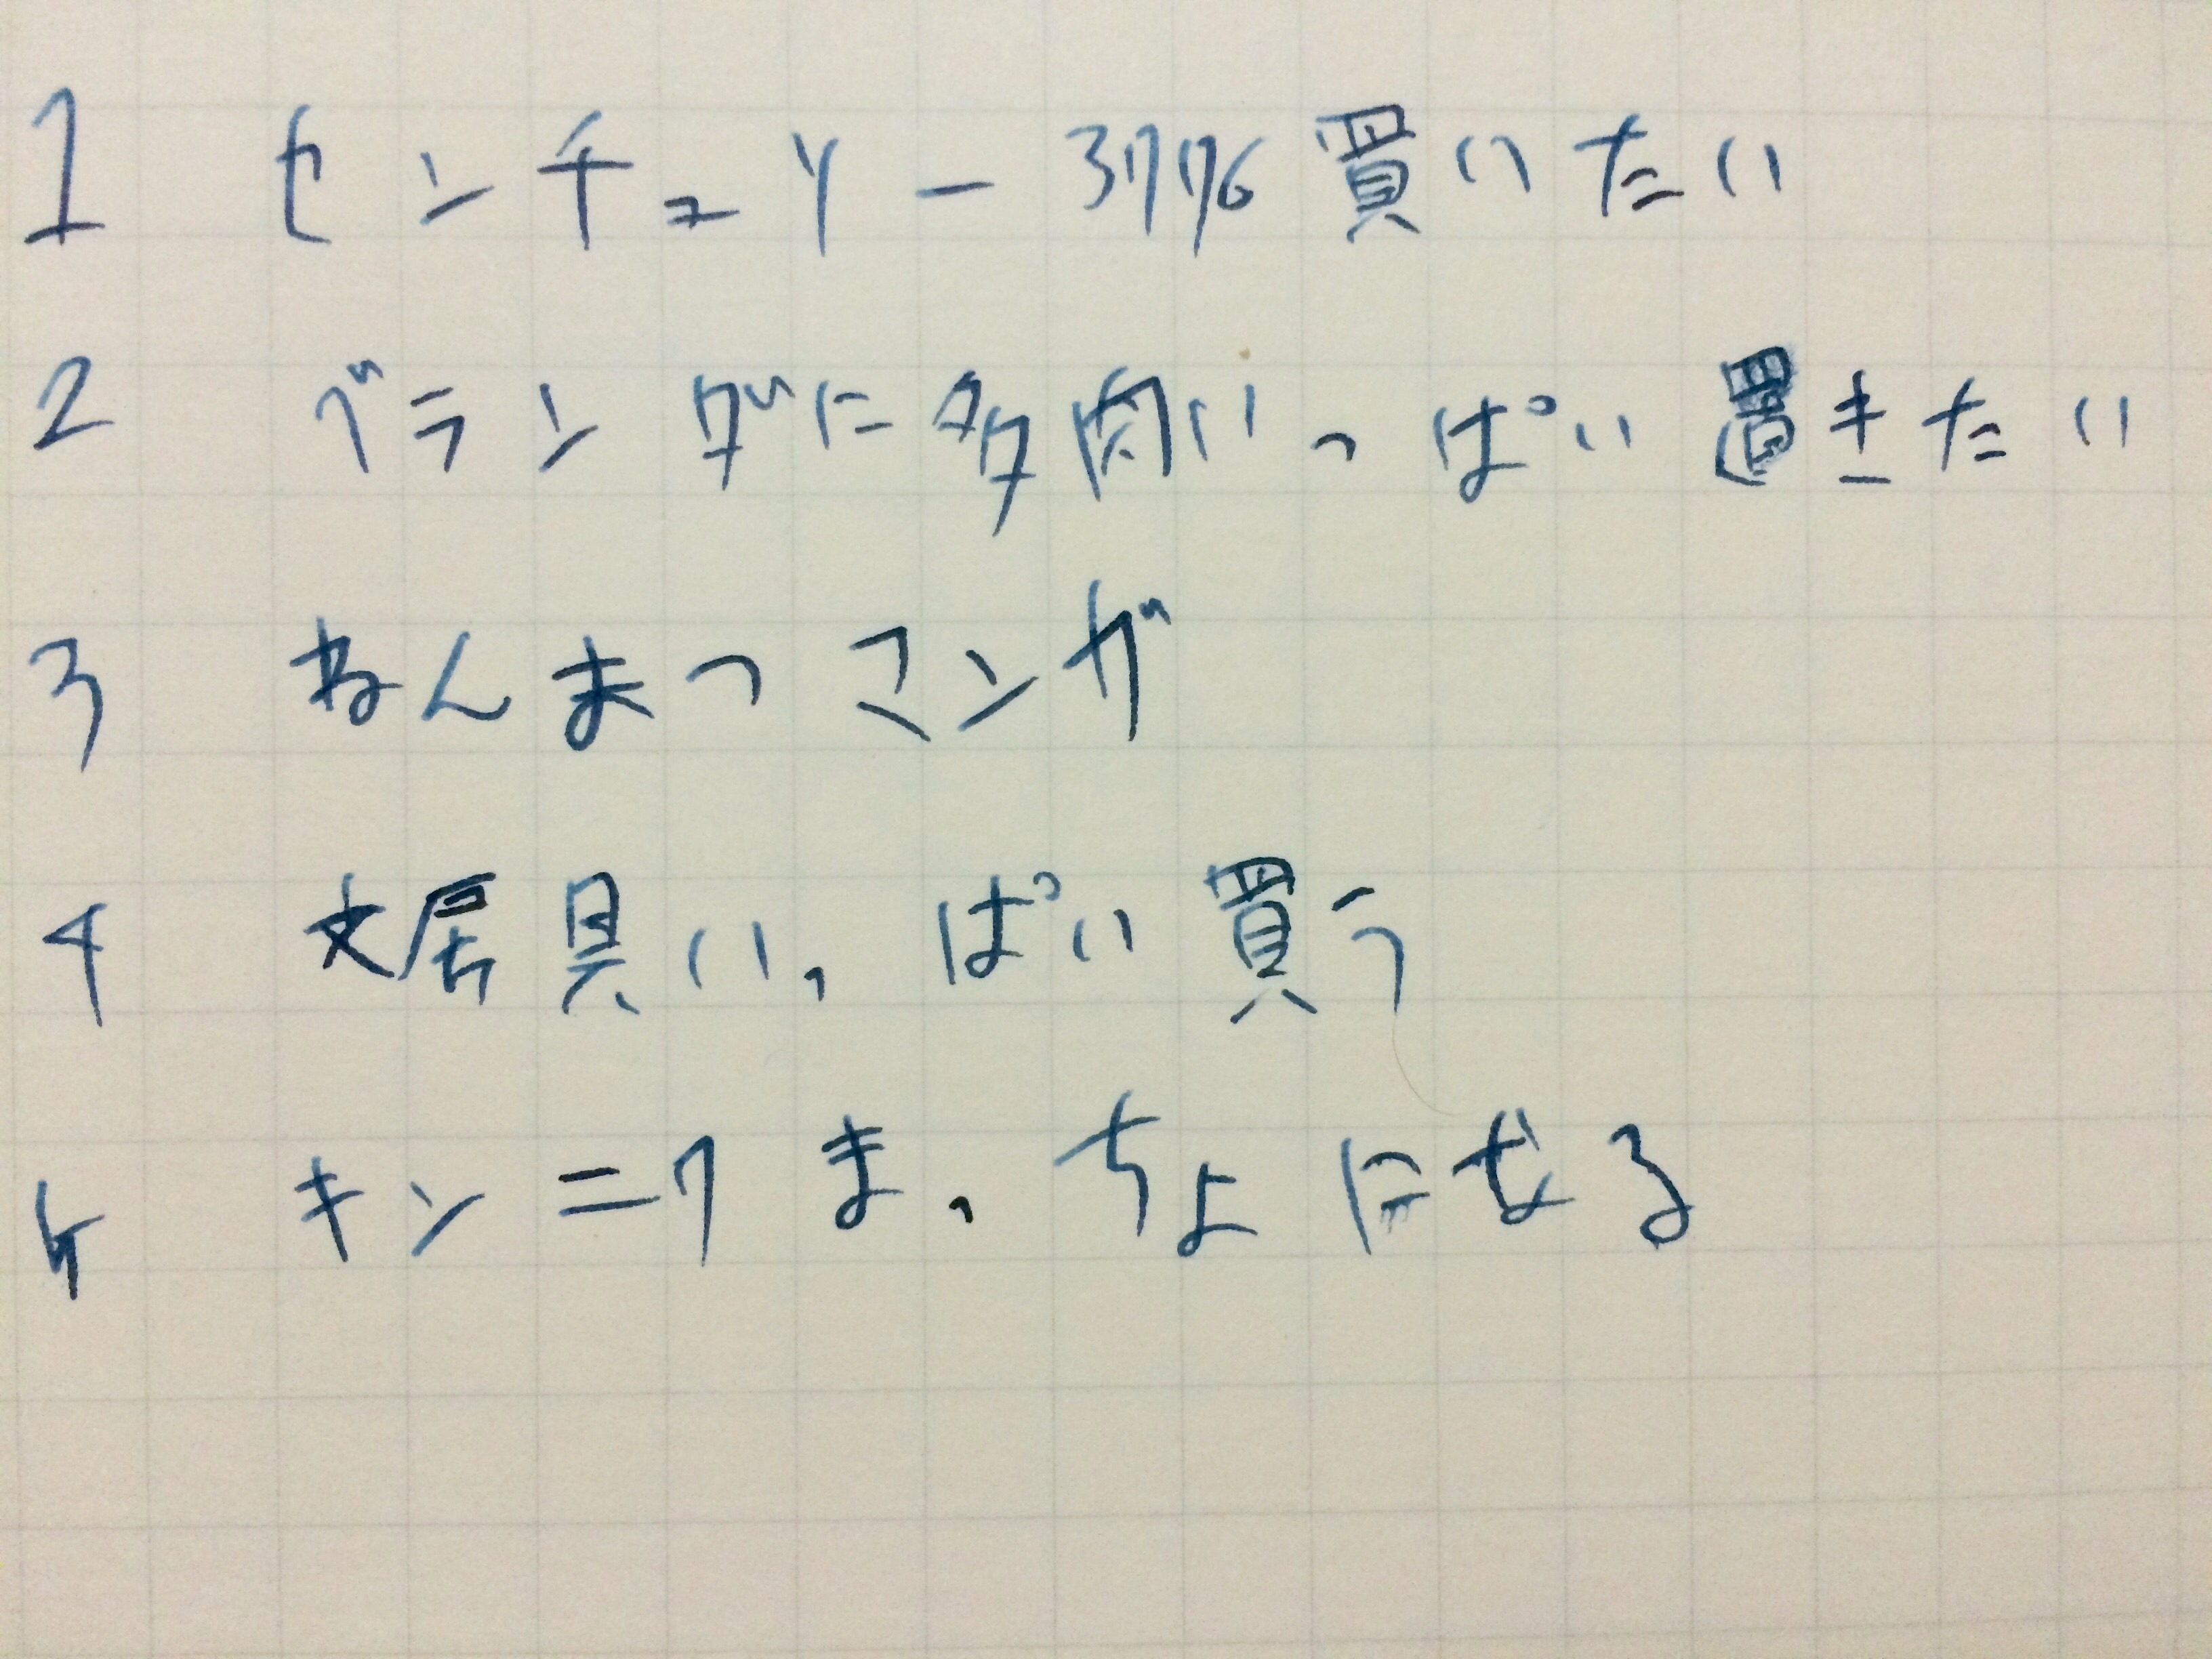 1 センチュリー3776買いたい
2 ベランダに多肉いっぱい置きたい
3 ねんまつマンガ
4 文居具いっぱい買う
5 キンニクまっちょになる